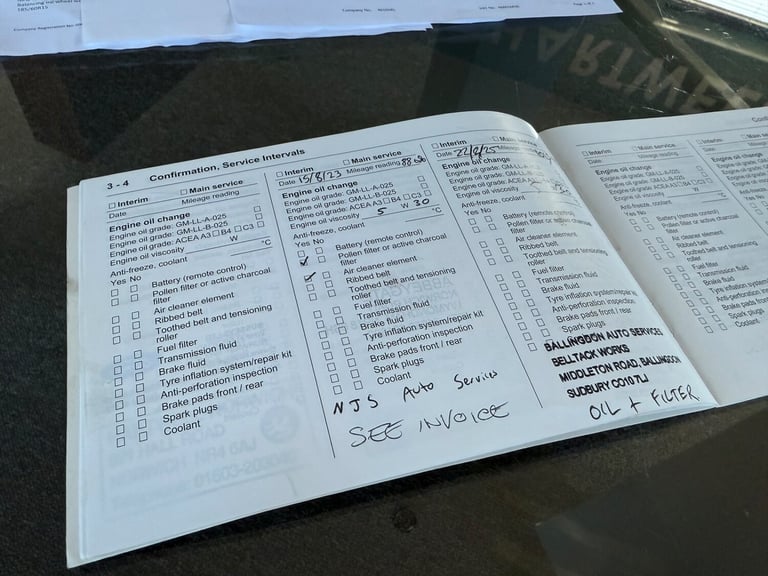 Balancing
185/60R15
Company No.
Page 1 of 1
HARTWELL
3 - 4 Confirmation, Service Intervals
☐ Interim ☐ Main service
Date Mileage reading
Engine oil change
Engine oil grade: GM-LL-A-025 ☐
Engine oil grade: GM-LL-B-025 ☐
Engine oil grade: ACEA A3 ☐ B4 ☐ C3 ☐
Engine oil viscosity W
Anti-freeze, coolant °C
Yes No
☐ ☐ Battery (remote control)
☐ ☐ Pollen filter or active charcoal
filter
☐ ☐ Air cleaner element
☐ ☐ Ribbed belt
☐ ☐ Toothed belt and tensioning
roller
☐ ☐ Fuel filter
☐ ☐ Transmission fluid
☐ ☐ Brake fluid
☐ ☐ Tyre inflation system/repair kit
☐ ☐ Anti-perforation inspection
☐ ☐ Brake pads front / rear
☐ ☐ Spark plugs
☐ ☐ Coolant
☐ Interim ☐ Main service
Date 15/8/23 Mileage reading
Engine oil change
Engine oil grade: GM-LL-A-025 ☐
Engine oil grade: GM-LL-B-025 ☐
Engine oil grade: ACEA A3 ☐ B4 ☐ C3 ☐
Engine oil viscosity 5 W 30
Anti-freeze, coolant °C
Yes No
☐ ☐ Battery (remote control)
✓ ☐ Pollen filter or active charcoal
filter
✓ ☐ Air cleaner element
☐ ☐ Ribbed belt
☐ ☐ Toothed belt and tensioning
roller
☐ ☐ Fuel filter
☐ ☐ Transmission fluid
☐ ☐ Brake fluid
☐ ☐ Tyre inflation system/repair kit
☐ ☐ Anti-perforation inspection
☐ ☐ Brake pads front / rear
☐ ☐ Spark plugs
☐ ☐ Coolant
NJS Auto Services
SEE INVOICE
☐ Interim ☐ Main
Date Mileage reading
Engine oil change
Engine oil grade: GM-LL-A-025
Engine oil grade: GM-LL-B-025
Engine oil grade: ACEA
Engine oil viscosity
Anti-freeze, coolant
Yes No
Battery (remote
Pollen filter or active
filter
Air cleaner element
Ribbed belt
Toothed belt and tensioning
roller
Fuel filter
Transmission fluid
Brake fluid
Tyre inflation system/repair
Anti-perforation inspection
Brake pads front / rear
Spark plugs
BALLINGDON AUTO SERVICES
BELLTACK WORKS
MIDDLETON ROAD, BALLINGDON
SUDBURY CO10 7LJ
OIL + FILTER
☐ Interim ☐ Main service
Date Mileage reading
Engine oil change
Engine oil grade: GM-LL-A-025
Engine oil grade: GM-LL-B-025
Engine oil grade: ACEA A3 ☐ B4 ☐ C3 ☐
Engine oil viscosity W
Anti-freeze, coolant °C
Yes No
☐ ☐ Battery (remote control)
☐ ☐ Pollen filter or active charcoal
filter
☐ ☐ Air cleaner element
☐ ☐ Ribbed belt
☐ ☐ Toothed belt and tensioning
roller
☐ ☐ Fuel filter
☐ ☐ Transmission fluid
☐ ☐ Brake fluid
☐ ☐ Tyre inflation
☐ ☐ Anti-perforation
☐ ☐ Brake pads
☐ ☐ Spark plugs
☐ ☐ Coolant
☐ Interim
Date
Engine oil change
Engine oil grade
Engine oil grade
Engine oil grade
Engine oil viscosity
Anti-freeze, coolant
Yes No